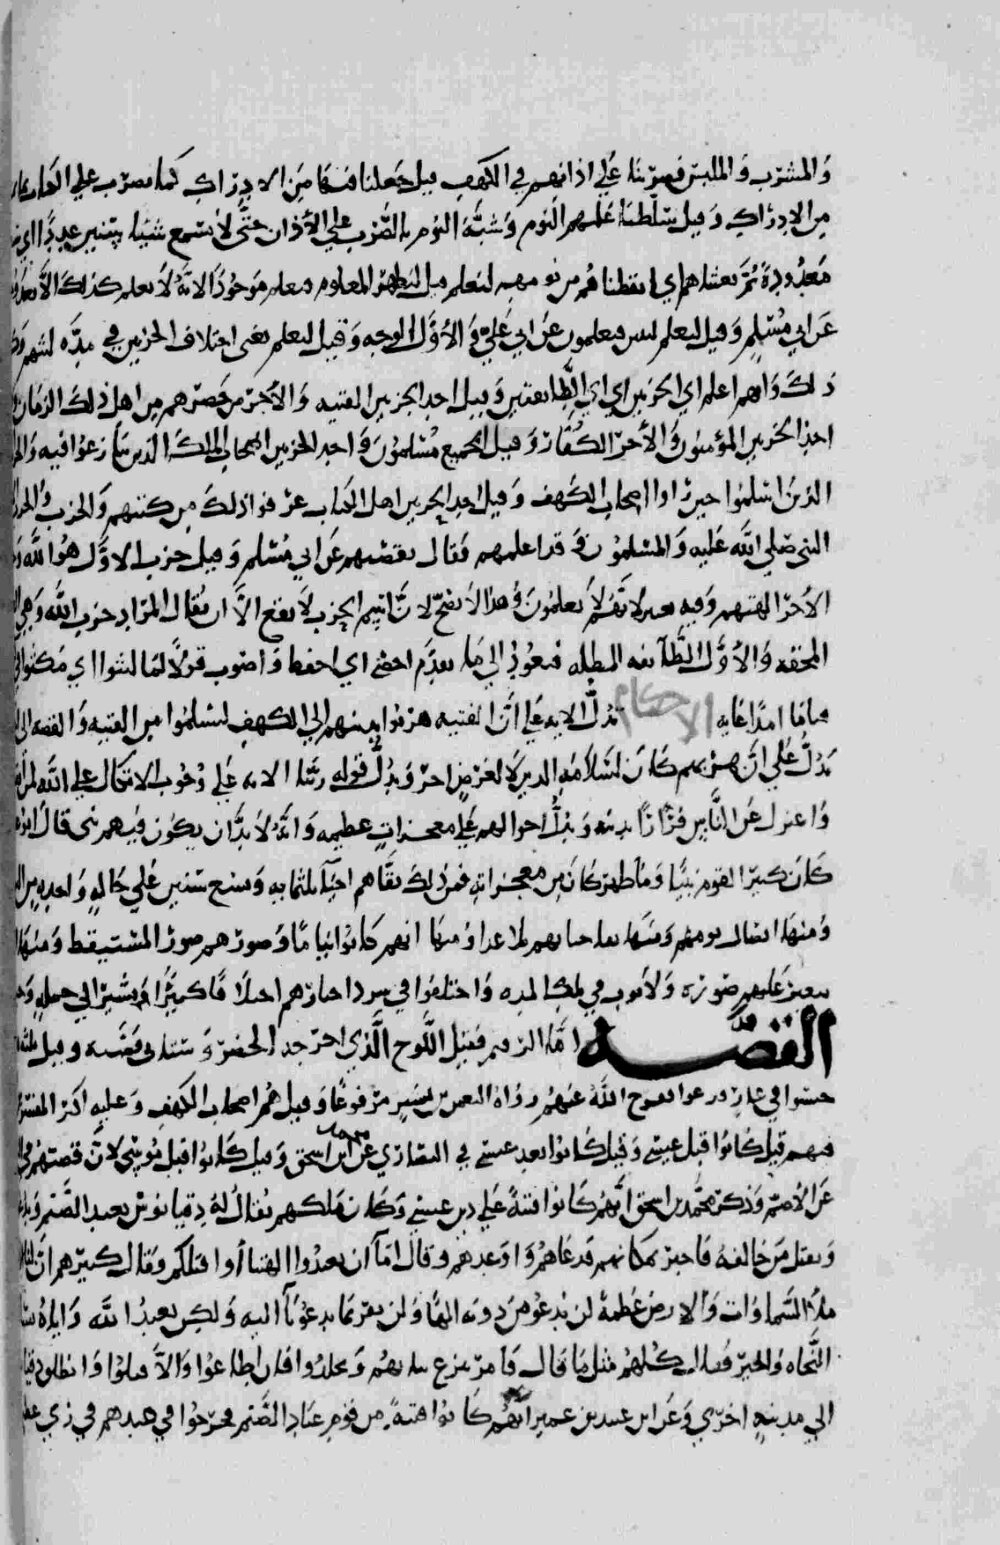 والمشرب والملبس فضربنا على اذانهم في الكهف قيل جعلنا فيها من الادراك كما يضرب على
من الادراك وقيل سلطنا عليهم النوم وشبه النوم بالضرب على الأذان حتى لا يسمع شيئا سنين عددا اي
معدودة ثم بعثناهم اي ايقظناهم من نومهم لنعلم قيل ليظهر المعلوم فنعلم موجودا لانه لا يعلم كذلك الا
عن ابي مسلم وقيل ليعلم لبس فيعلمون عن ابي علي والأول الوجه وقيل ليعلم يعني اختلاف الحزبين في مدة لبثهم
ذلك وايهم اعلم اي الحزبين اي اي الطايفتين وقيل احد الحزبين الفتية والآخر من حضرهم من اهل ذلك الزمان
احد الحزبين المؤمنون والآخر الكفار وقيل الجميع مسلمون واحد الحزبين اصحاب الملك الذين تنازعوا فيه
الذين اسلموا حين راوا اصحاب الكهف وقيل احد الحزبين اهل الكتاب عرفوا ذلك من كتبهم والحزب
النبي صلى الله عليه والمسلمون قد اعلمهم فقال نقصهم عن ابي مسلم وقيل حزب الاول هو الله
الآخر الهتهم وفيه بعد لانهم لا يعلمون وهذا لا يصح لان اسم الحزب لا يقع الا ان يقال المراد حزب الله وهي
المحقة والأول الطايفة المبطله فيعود الى ما تقدم احصى اي احفظ واصوب قولا لما لبثوا اي مكثوا
نياما امدا غايه الاحكام تدل الايه على أن الفتيه هربوا بدينهم الى الكهف ليسلموا من الفتنه والقصه
تدل على ان هربهم كان لسلامه الدين لا لغرض اخر ويدل قوله ربنا الايه على وجوب الاتكال على الله
واعتزل عن الناس فرارا بدينه ويدل احوالهم على معجزات عظيمه وانه لا بد ان يكون فيهم نبي قال
كان كبير القوم نبيا وما ظهر كان من معجزاته فمن ذلك بقاهم احيآ ثلثمايه وتسع سنين على حالة واحدة من
ومنها اتصال نومهم ومنها بقا حياتهم بلا غذا ومنها انهم كانوا نياما وصورهم صورة المستيقظ ومنها
تتغير عليهم صوره ولا ثوب في تلك المده واختلفوا في سرد اخبارهم اختلافا كثيرا ونشير الى جمله
القصه اما الرقيم فقيل اللوح الذي اخرجه الخضر وسناتي قصه وقيل
حبسوا في غار ودعوا ففرج الله عنهم رواه النعمن بن بشير مرفوعا وقيل هم اصحاب الكهف وعليه اكثر
فيهم قيل كانوا قبل عيسى وقيل كانوا بعد عيسى في النصارى عن محمد ابن اسحق وقيل كانوا قبل موسى لان قصتهم في
عن الأصم وذكر محمد بن اسحق انهم كانوا فتية على دين عيسى وكان ملكهم يقال له دقيانوس يعبد الصنم
ويقتل من خالفه فاخبر بمكانهم فدعاهم واوعدهم وقال اما ان تعبدوا الهتنا أو اقتلكم وقال كبيرهم ان
ملأ السماوات والارض عظمة لن ندعو من دونه الها ولن نقر بما تدعونا اليه ولكن نعبد الله واياه
النجاه والخير فقال كلهم مثل ما قال فامر بنزع ثيابهم وجلدوا فان اطاعوا والا قتلوا وانطلق
الى مدينه اخرى وعن ابن عبيد بن عمير انهم كانوا فتية من قوم عباد الصنم فخرجوا في عيدهم في زي